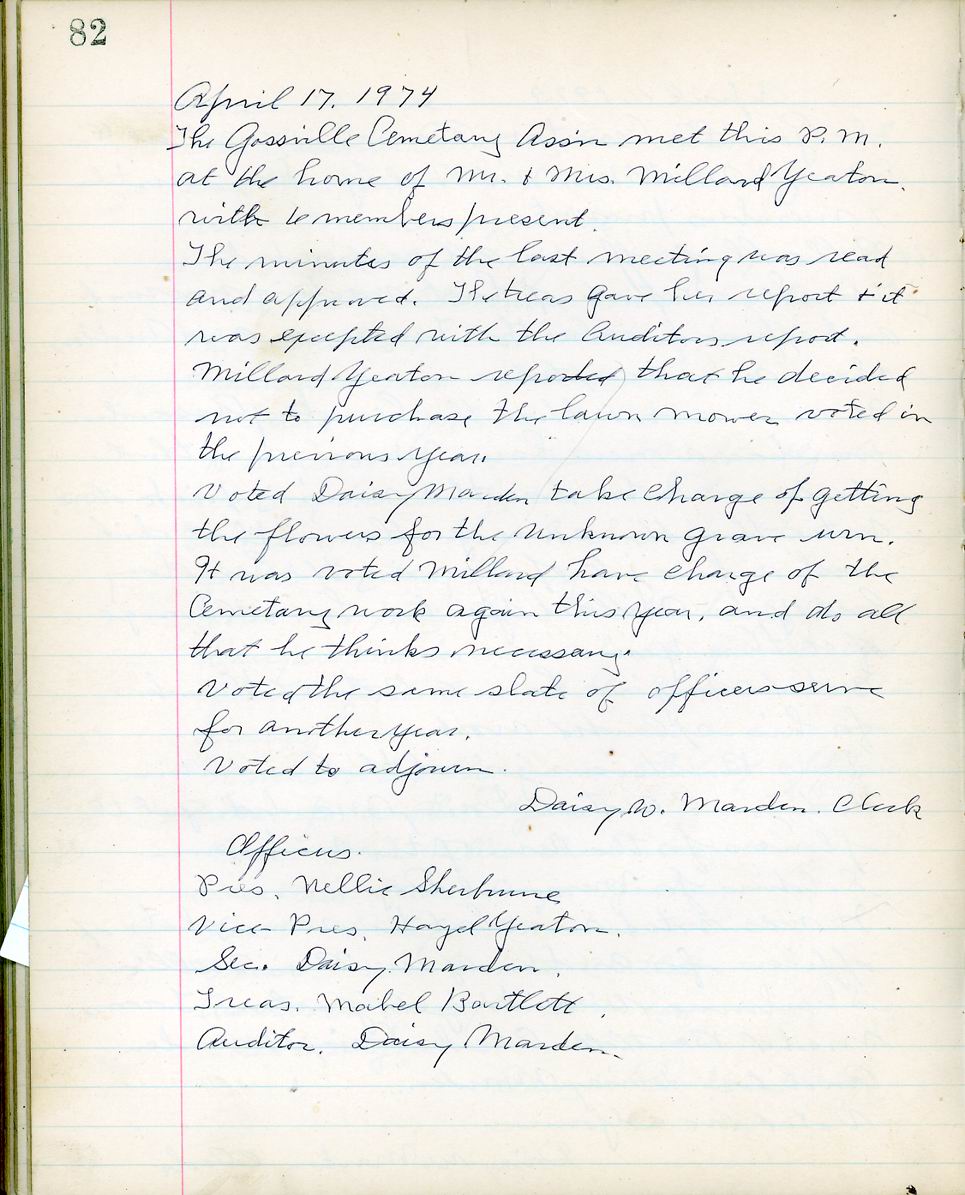 82
April 17, 1974
The Gossville Cemetary Ass'n met this P.M.
at the home of Mr. & Mrs. Millard Yeaton.
with 6 members present.
The minutes of the last meeting was read
and approved. The treas gave her report & it
was excepted with the Auditors report.
Millard Yeaton reported that he decided
not to purchase the lawn mower voted in
the previous year.
Voted Daisy Marden take charge of getting
the flowers for the unknown grave urn.
It was voted Millard have charge of the
Cemetary work again this year, and do all
that he thinks necessary.
Voted the same slate of officers serve
for another year.
Voted to adjourn.
Daisy W. Marden. Clerk
Officers.
Pres. Nellie Sherburne
Vice Pres. Hazel Yeaton.
Sec. Daisy Marden.
Treas. Mabel Bartlett.
Auditor. Daisy Marden.